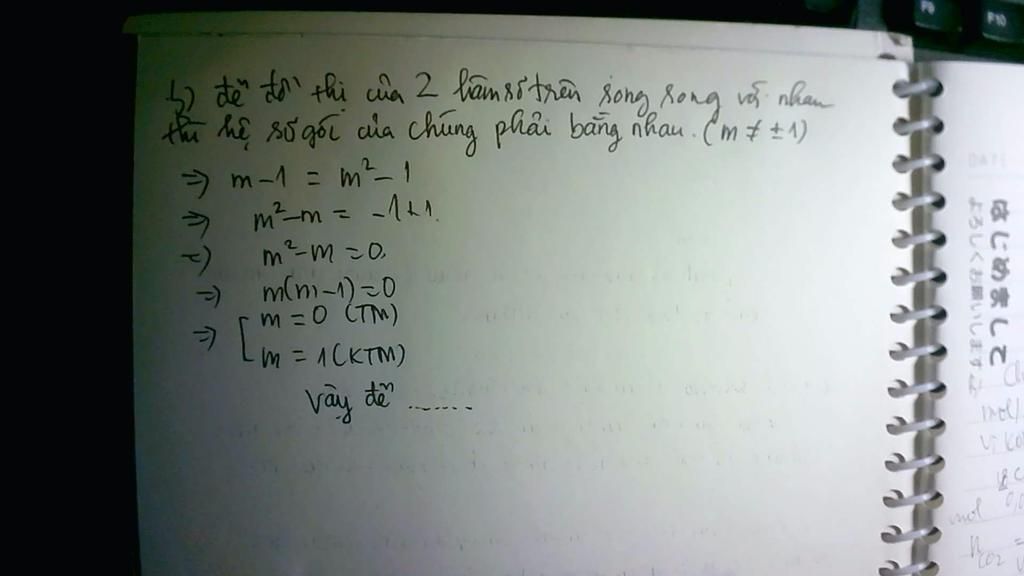 b) để đồ thị của 2 hàm số trên song song với nhau
thì hệ số góc của chúng phải bằng nhau. (m ≠ ±1)
=> m-1 = m²-1
=> m²-m = -1+1.
=> m²-m=0.
=> m(m-1)=0
=> [ m=0 (TM)
m = 1 (KTM)
Vậy để .......
F9
F10
DATE
はじめまして
よろしくお願いします
mol/
mol